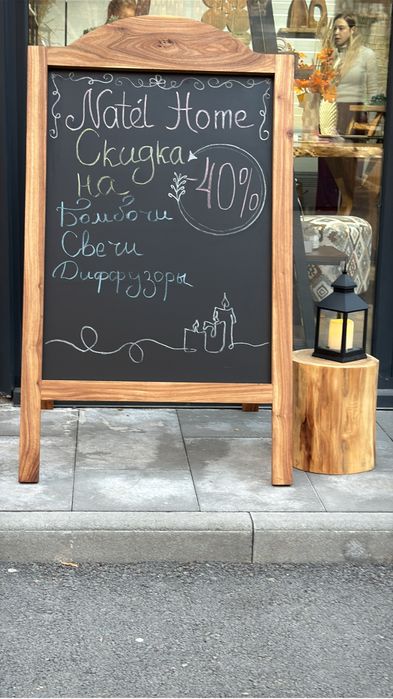 Natél Home
Скидка
на 40%
Бомбочи
Свечи
Диффузоры